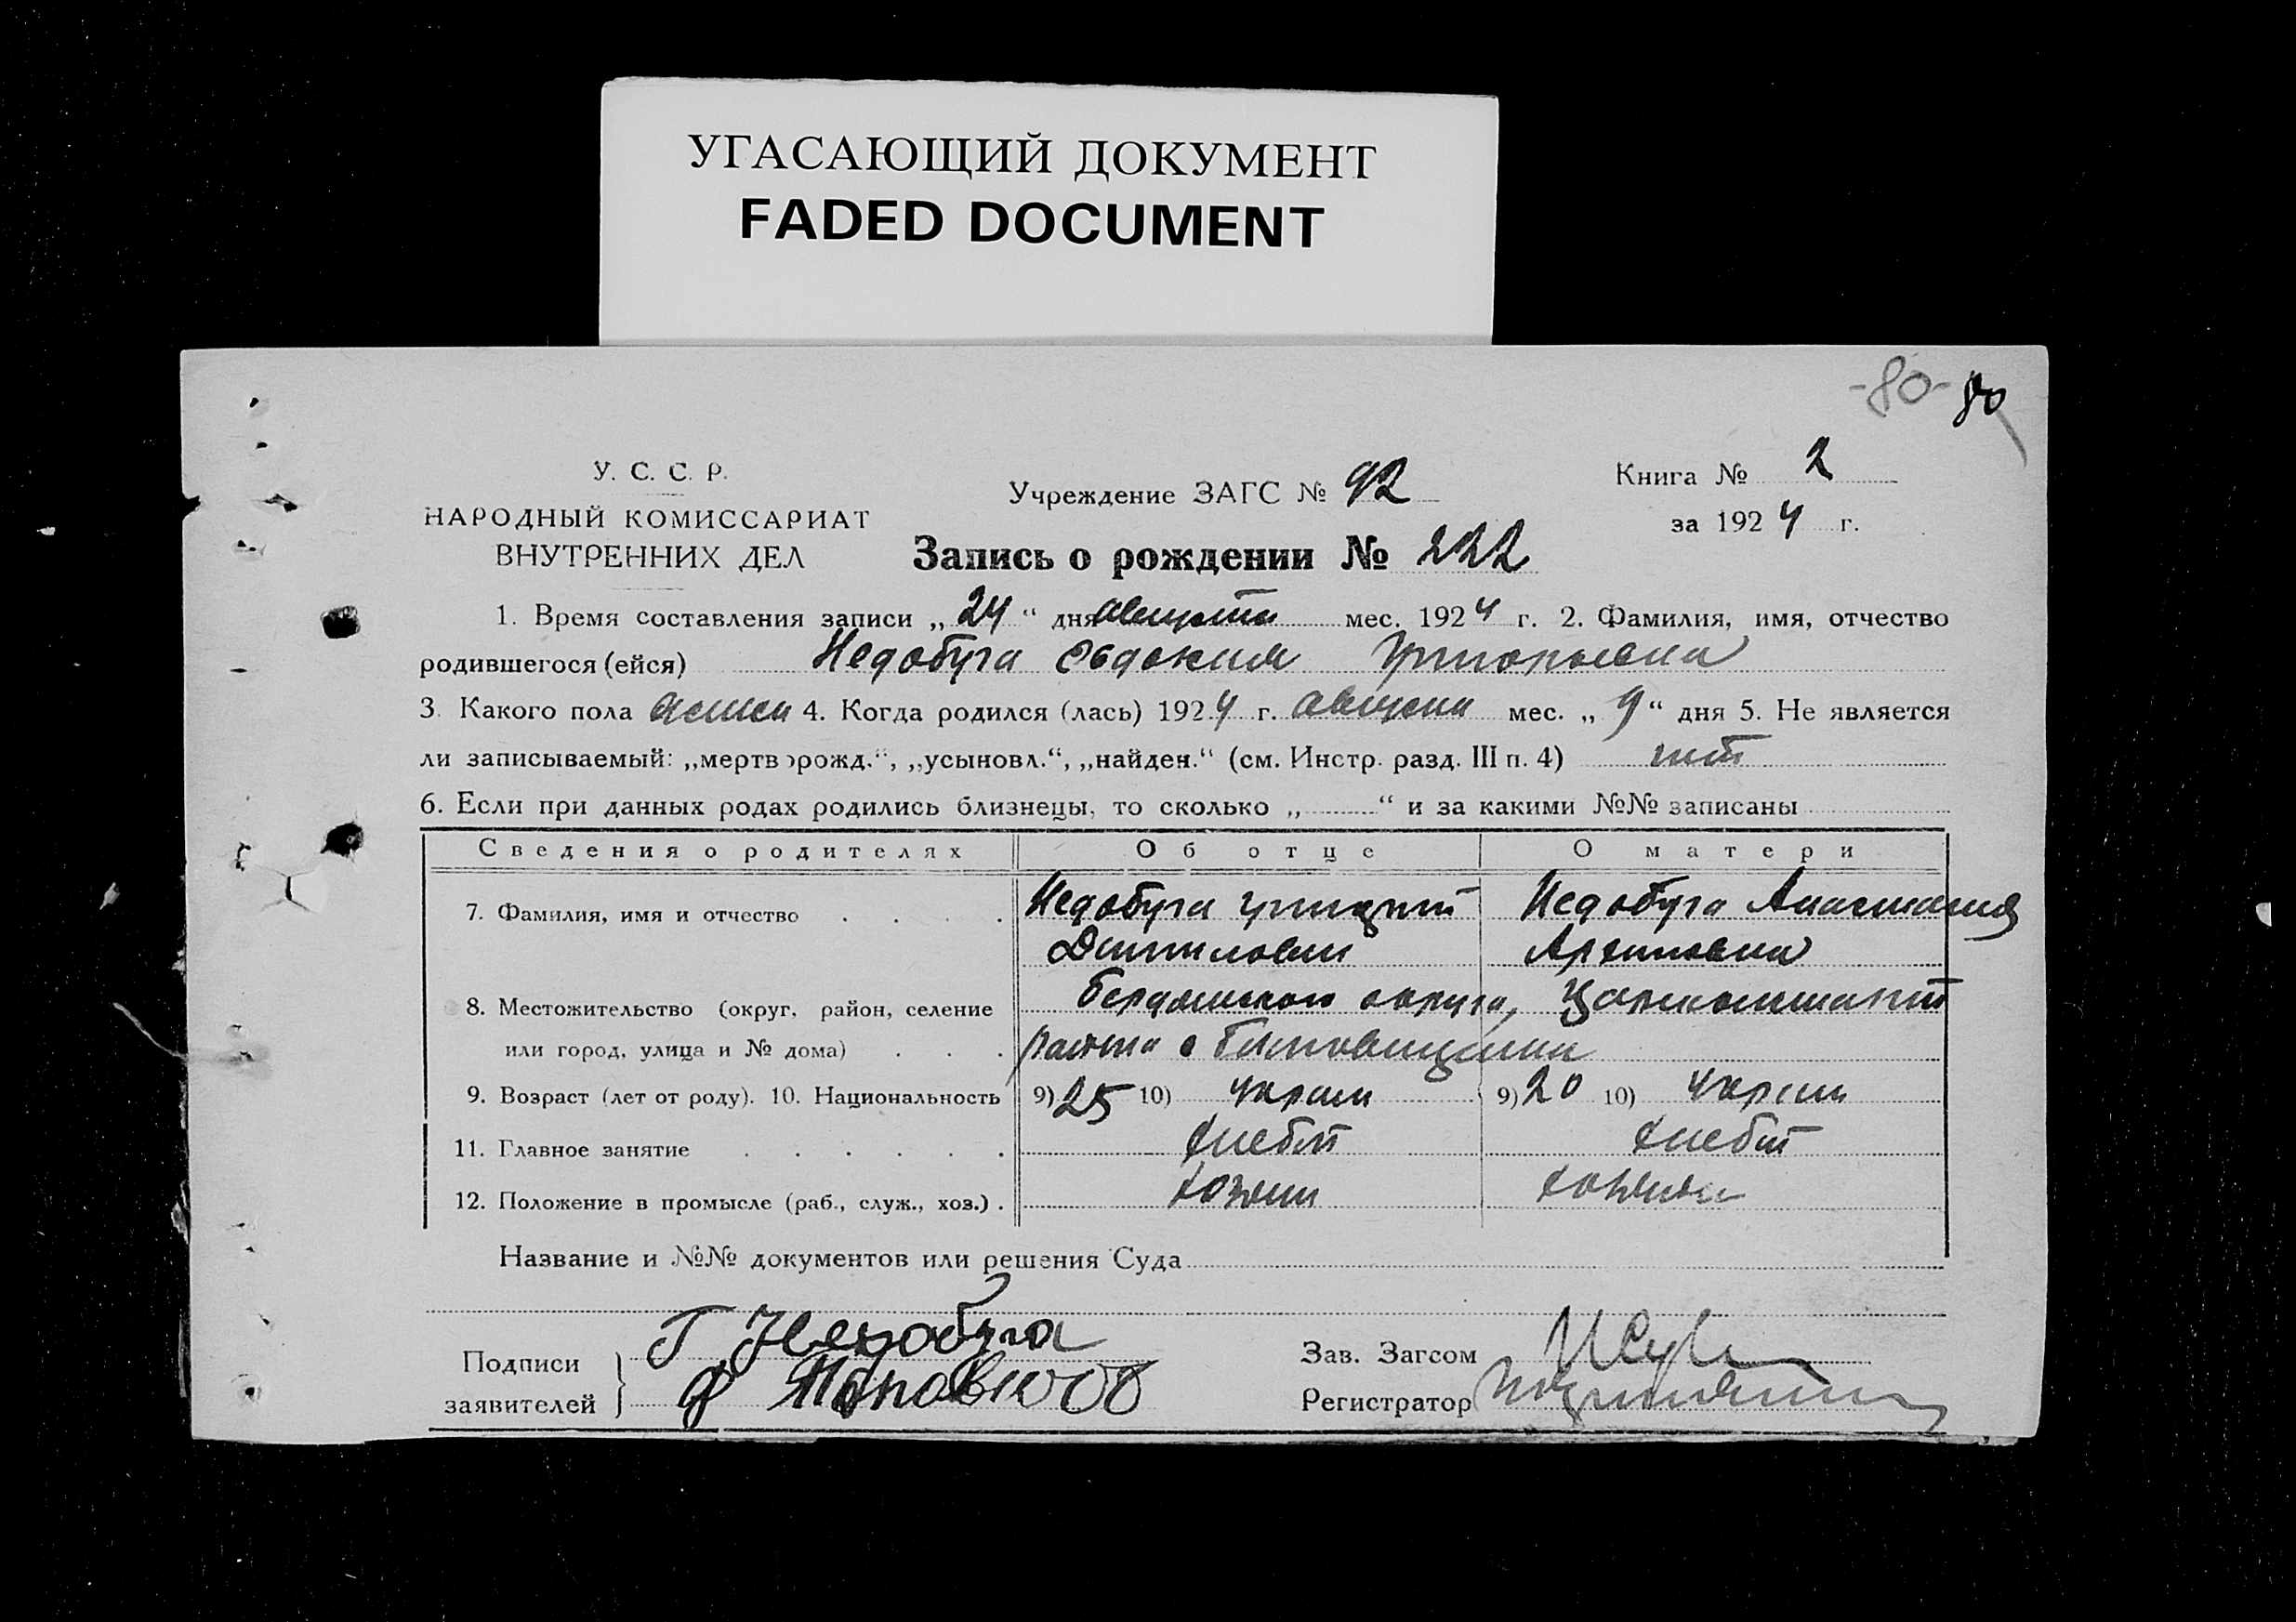 УГАСАЮЩИЙ ДОКУМЕНТ
FADED DOCUMENT
-80- 80
У. С. С. Р.
НАРОДНЫЙ КОМИССАРИАТ
ВНУТРЕННИХ ДЕЛ
Учреждение ЗАГС № 92
Книга № 2
за 1924 г.
Запись о рождении № 222
1. Время составления записи „24“ дня августа мес. 1924 г. 2. Фамилия, имя, отчество
родившегося (ейся) Недобуга Евдокия Григорьевна
3. Какого пола женск 4. Когда родился (лась) 1924 г. августа мес. „9“ дня 5. Не является
ли записываемый: „мертворожд.“, „усыновл.“, „найден.“ (см. Инстр. разд. III п. 4) нет
6. Если при данных родах родились близнецы, то сколько „ “ и за какими №№ записаны
Сведения о родителях Об отце О матери
7. Фамилия, имя и отчество Недобуга Григорий Недобуга Анастасия
8. Местожительство (округ, район, селение Бердянского округа,
или город, улица и № дома) района
9. Возраст (лет от роду). 10. Национальность 9) 25 10) украин 9) 20 10) украин
11. Главное занятие хлебоп хлебоп
12. Положение в промысле (раб., служ., хоз.) хозяин хозяйка
Название и №№ документов или решения Суда
Подписи заявителей Г Недобуга
Ф
Зав. Загсом
Регистратор